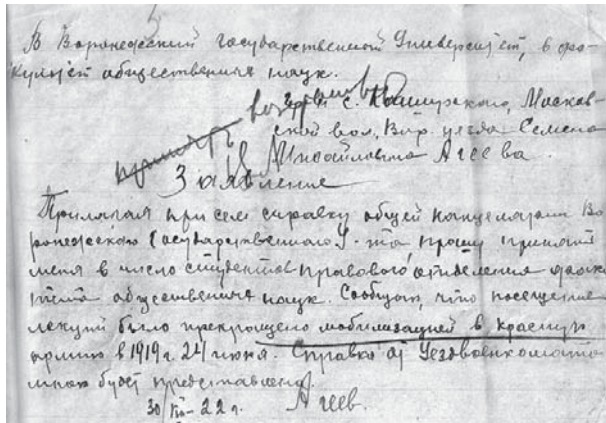 В Воронежский Государственный Университет, в фа-
культет общественных наук.
гр-на с. Каширского, Москов-
ской вол., Вор. уезда Семена
Михайловича Агеева.
Заявление
Прилагая при сем справку общей канцелярии Во-
ронежского Государственного У-та прошу принять
меня в число студентов правового отделения фак-
тета общественных наук. Сообщаю, что посещение
лекций было прекращено мобилизацией в красную
армию в 1919 г. 24 июня. Справка от Уездвоенкомата
мною будет представлена.
30/VII-22 г. Агеев.